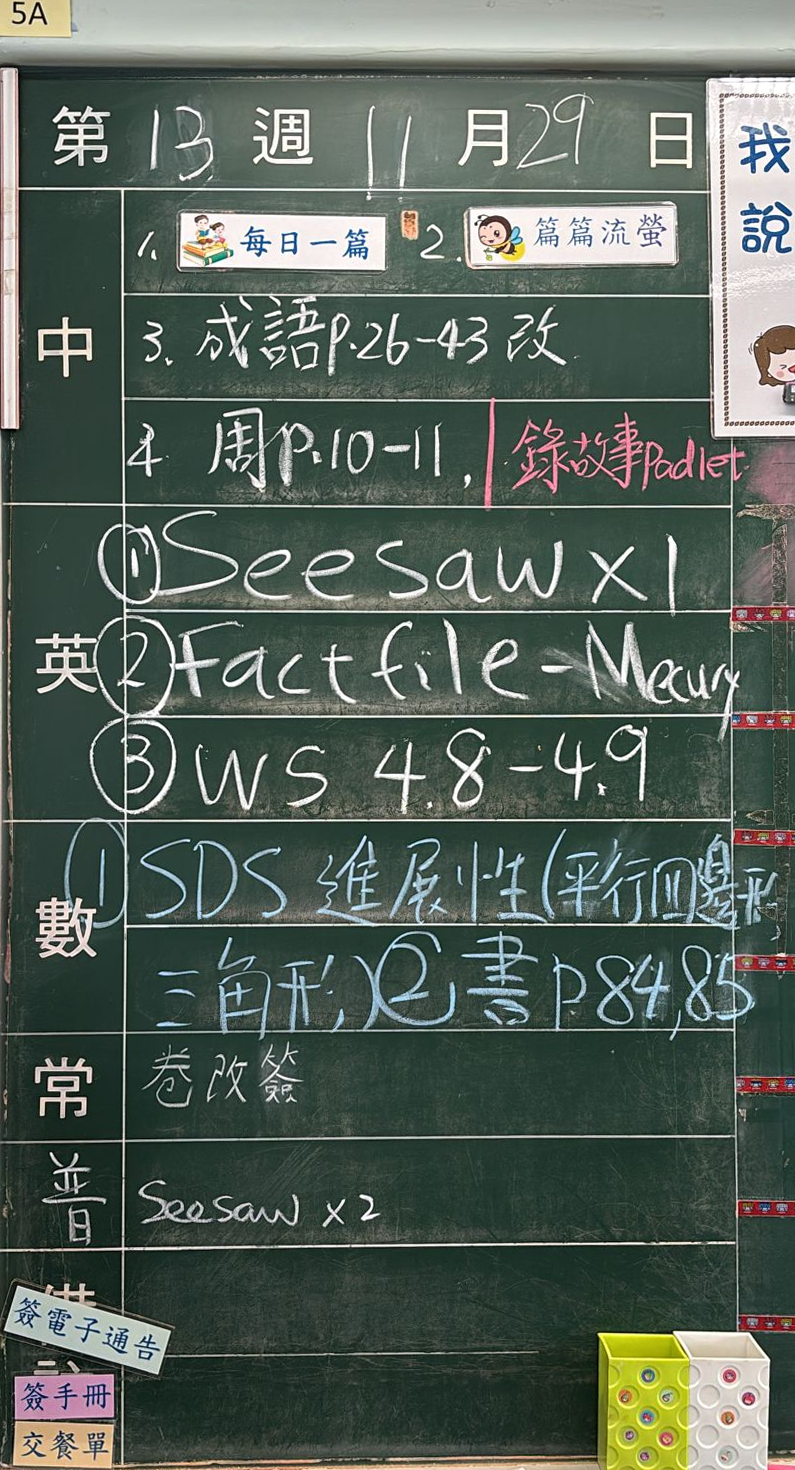 5A
第 13 週 11 月 29 日
我說
中
1. 每日一篇 2. 篇篇流螢
3. 成語p.26-43 改
4 周p.10-11, 錄故事padlet
英
①Seesaw x1
②Factfile-Mecury
③WS 4.8-4.9
數
①SDS 進展性(平行四邊形
三角形)②書p84,85
常
卷改簽
普
Seesaw x2
簽電子通告
簽手冊
交餐單